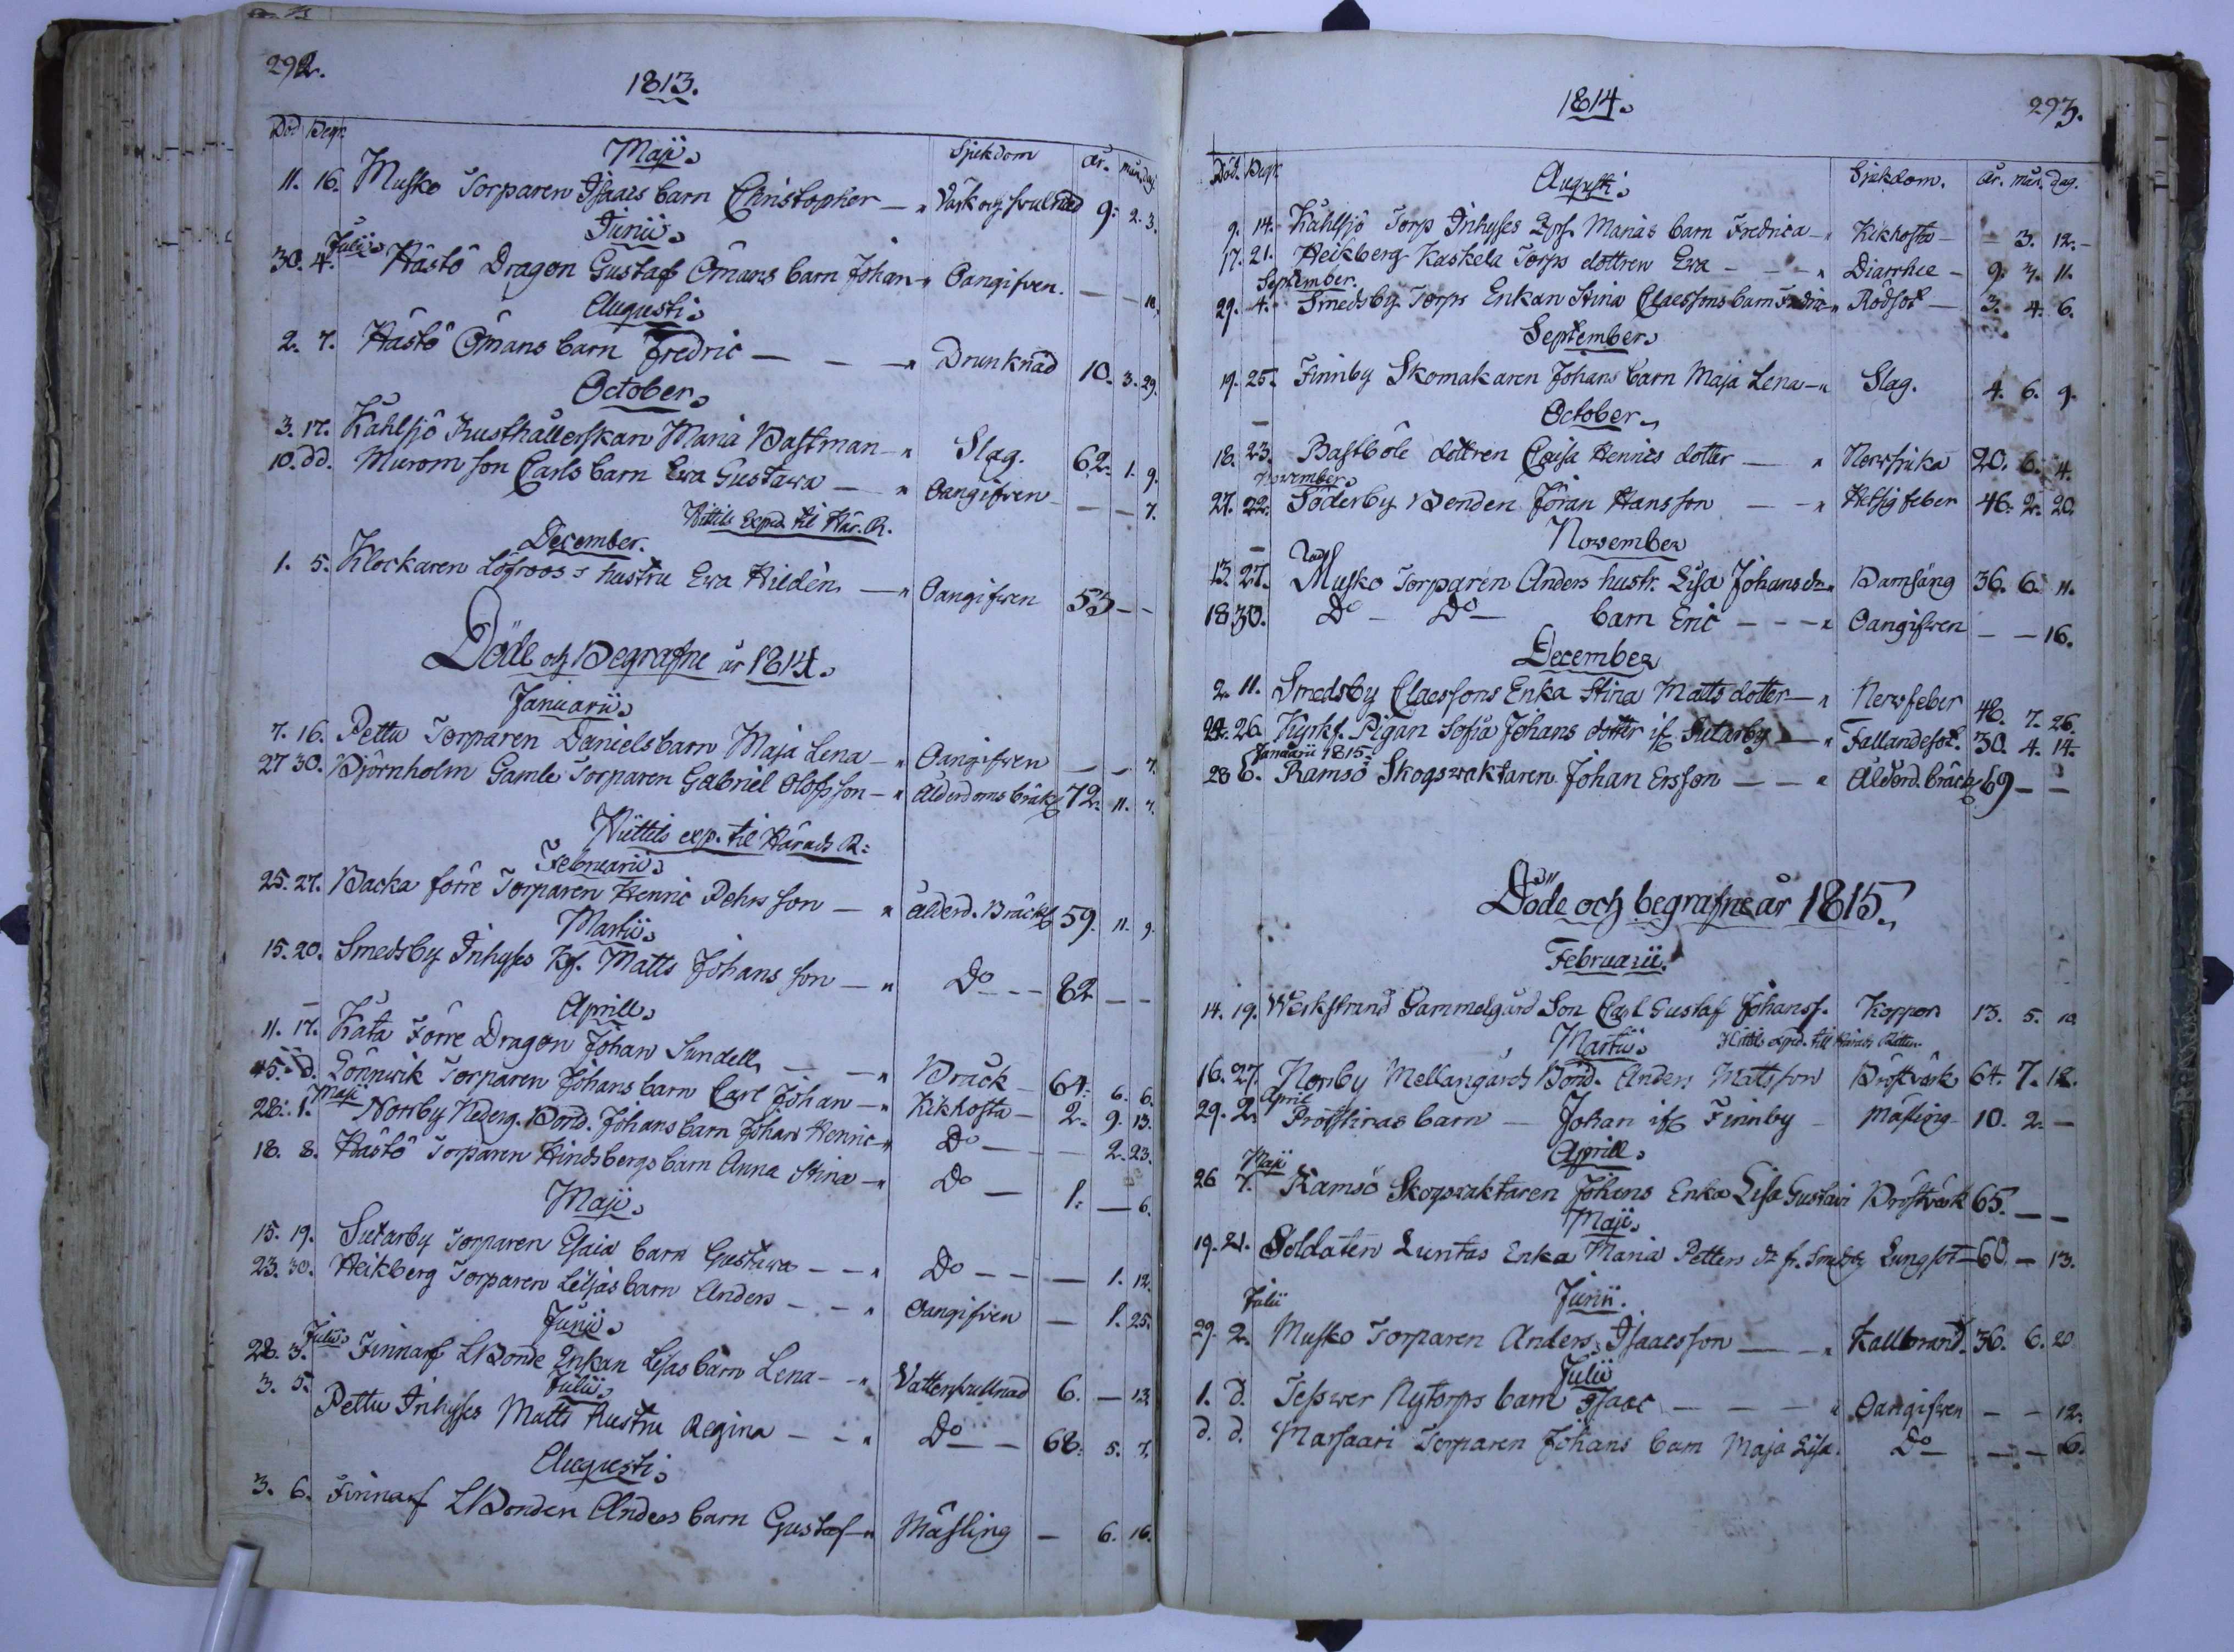 292.
1813.
Död Begr. Sjukdom år. mån. dag.
Maji.
11. 16. Musko Torparen Isaacs barn Christopher — " Värk och svulnad 9: 2. 3.
Junii.
30. 4. Julii. Hästö Dragon Gustaf Ömans barn Johan " Oangifven. — — 10.
Augusti.
2. 7. Hästö Ömans barn Fredric — — " Drunknad 10. 3. 29.
October.
3. 17. Kahlsjö Rusthållerskan Maria Bastman — " Slag. 62. 1. 9.
10. dd. Murom son Carls barn Ewa Gustawa — " Oangifven — — 7.
Hittils exped. til Här. R.
December.
1. 5. Klockaren Löfroos's hustru Ewa Hildén — " Oangifven 55 — —
Döde och Begrafne år 1814.
Januarii.
7. 16. Pettu Torparen Daniels barn Maja Lena — " Oangifven — — 7.
27 30. Björnholm Gamle Torparen Gabriel Olofsson — " ålderdoms bräk 72. 11.
Hittils exp. til Härads R:
Februarii.
25. 27. Backa förre Torparen Henric Pehrs son — " ålderd. Bräckl 59. 11. 9.
Martii.
15. 20. Smedsby Inhyses Kf. Matts Johans son — " Do — — 82 — —
Aprill.
11. 17. Kata Förre Dragon Johan Sundell — — " Bråck — 64: 6. 6.
15. d. Lönnwik Torparen Johans barn Carl Johan — " Kikhosta — 2. 9. 13.
28. 1. Maji Norrby Nederg. Bond. Johans barn Johan Henric — " Do — — 2. 23.
18. 8. Hästö Torparen Hindsbergs barn Anna Stina — " Do — 1: — 6.
Maji.
15. 19. Sutarby Torparen Esaia barn Gustawa — — " Do — — — 1. 12.
23. 30. Heikberg Torparen barn Anders — — " Oangifven — 1. 25.
Junii.
28. 3. Julii. Finnarf LBonde Enkan Lisas barn Lena — " Vattusvullnad 6. — 13.
Julii.
3. 5. Pettu Inhyses Matts Hustru Regina — — " Do — — 68. 5. 7.
Augusti.
3. 6. Finnarf LBonden Anders barn Gustaf — " Mässling — 6. 16.
1814.
293.
Död. Begr. Sjukdom. år. mån. dag.
Augusti.
9. 14. Kahlsjö Torp Inhyses Marias barn Fredrica — " Kikhosta — — 3. 12. —
17. 21. Heikberg Kaskela Torps dottren Ewa — — — " Diarrhee — 9. 3. 11.
September.
29. 4. Smedsby Torps Enkan Stina Claessons barn " Rödsot — 3. 4. 6.
September.
19. 25. Finnby Skomakaren Johans barn Maja Lena — " Slag. 4. 6. 9.
October.
18. 23. Bastböle dottren Caisa Henrics dotter — " Nervsiuka 20. 6. 4.
November.
27. 22. Söderby Bonden Jöran Hansson — — " Hetsig feber 46. 2. 20.
November
13. 27. Musko Torparen Anders hustr. Lisa Johans dr " Barnsäng 36. 6. 11.
18 30. Do — Do — barn Eric — — — " Oangifven — — 16.
December
2. 11. Smedsby Claessons Enka Stina Matts dotter — " Nervfeber 48. 7. 26.
24. 26. Kyrkf. Pigan Sofia Johans dotter if. Sutarby — " Fallandesot. 30. 4. 14.
Januarii 1815.
28 6. Ramsö Skogswaktaren Johan Ersson — — " ålderd. bräckl 69 — —
Döde och begrafne år 1815.
Februarii.
14. 19. Werkstrand Gammelgård Son Carl Gustaf Johanss. Koppor 13. 5. 10.
Martii. Hittils exped. till Härads Rätten.
16. 27. Norrby Mellangårds Bond. Anders Matsson Bröstvärk 64. 7. 12.
29. 2. April Prostinas barn — Johan if. Finnby — Mässling — 10. 2. —
Aprill.
26 7. Maji Ramsö Skogswaktaren Johans Enka Lisa Bröstvärk 65. — —
Maji.
19. 21. Soldaten Luntas Enka Maria Petters dr fr. Smedsby Lungsot — 60 — 13.
Junii.
29. 2. Julii Musko Torparen Anders Isaacsson — " Kallbrand. 36. 6. 20
Julii
1. d. Teswer Nytorps barn Isaac — — — " Oangifven — — 12.
d. d. Marsaari Torparen Johans barn Maja Lisa. Do — — — 6.